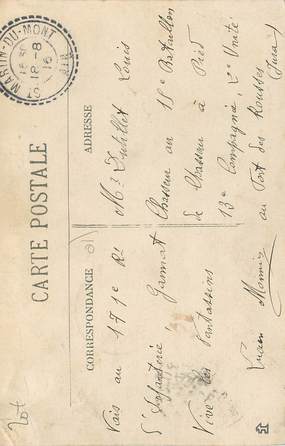 CARTE POSTALE
CORRESPONDANCE
ADRESSE
MARTIN-DU-MONT
18-8
16
AIN
Vais au 171e Rt
d'Infanterie, Gannat
Vive les Fantassins
Lucien
Mr Dutillet Louis
Chasseur au 15e Bataillon
de Chasseurs à Pied
13e Compagnie, 2e Unité
au Fort des Rousses
(Jura)